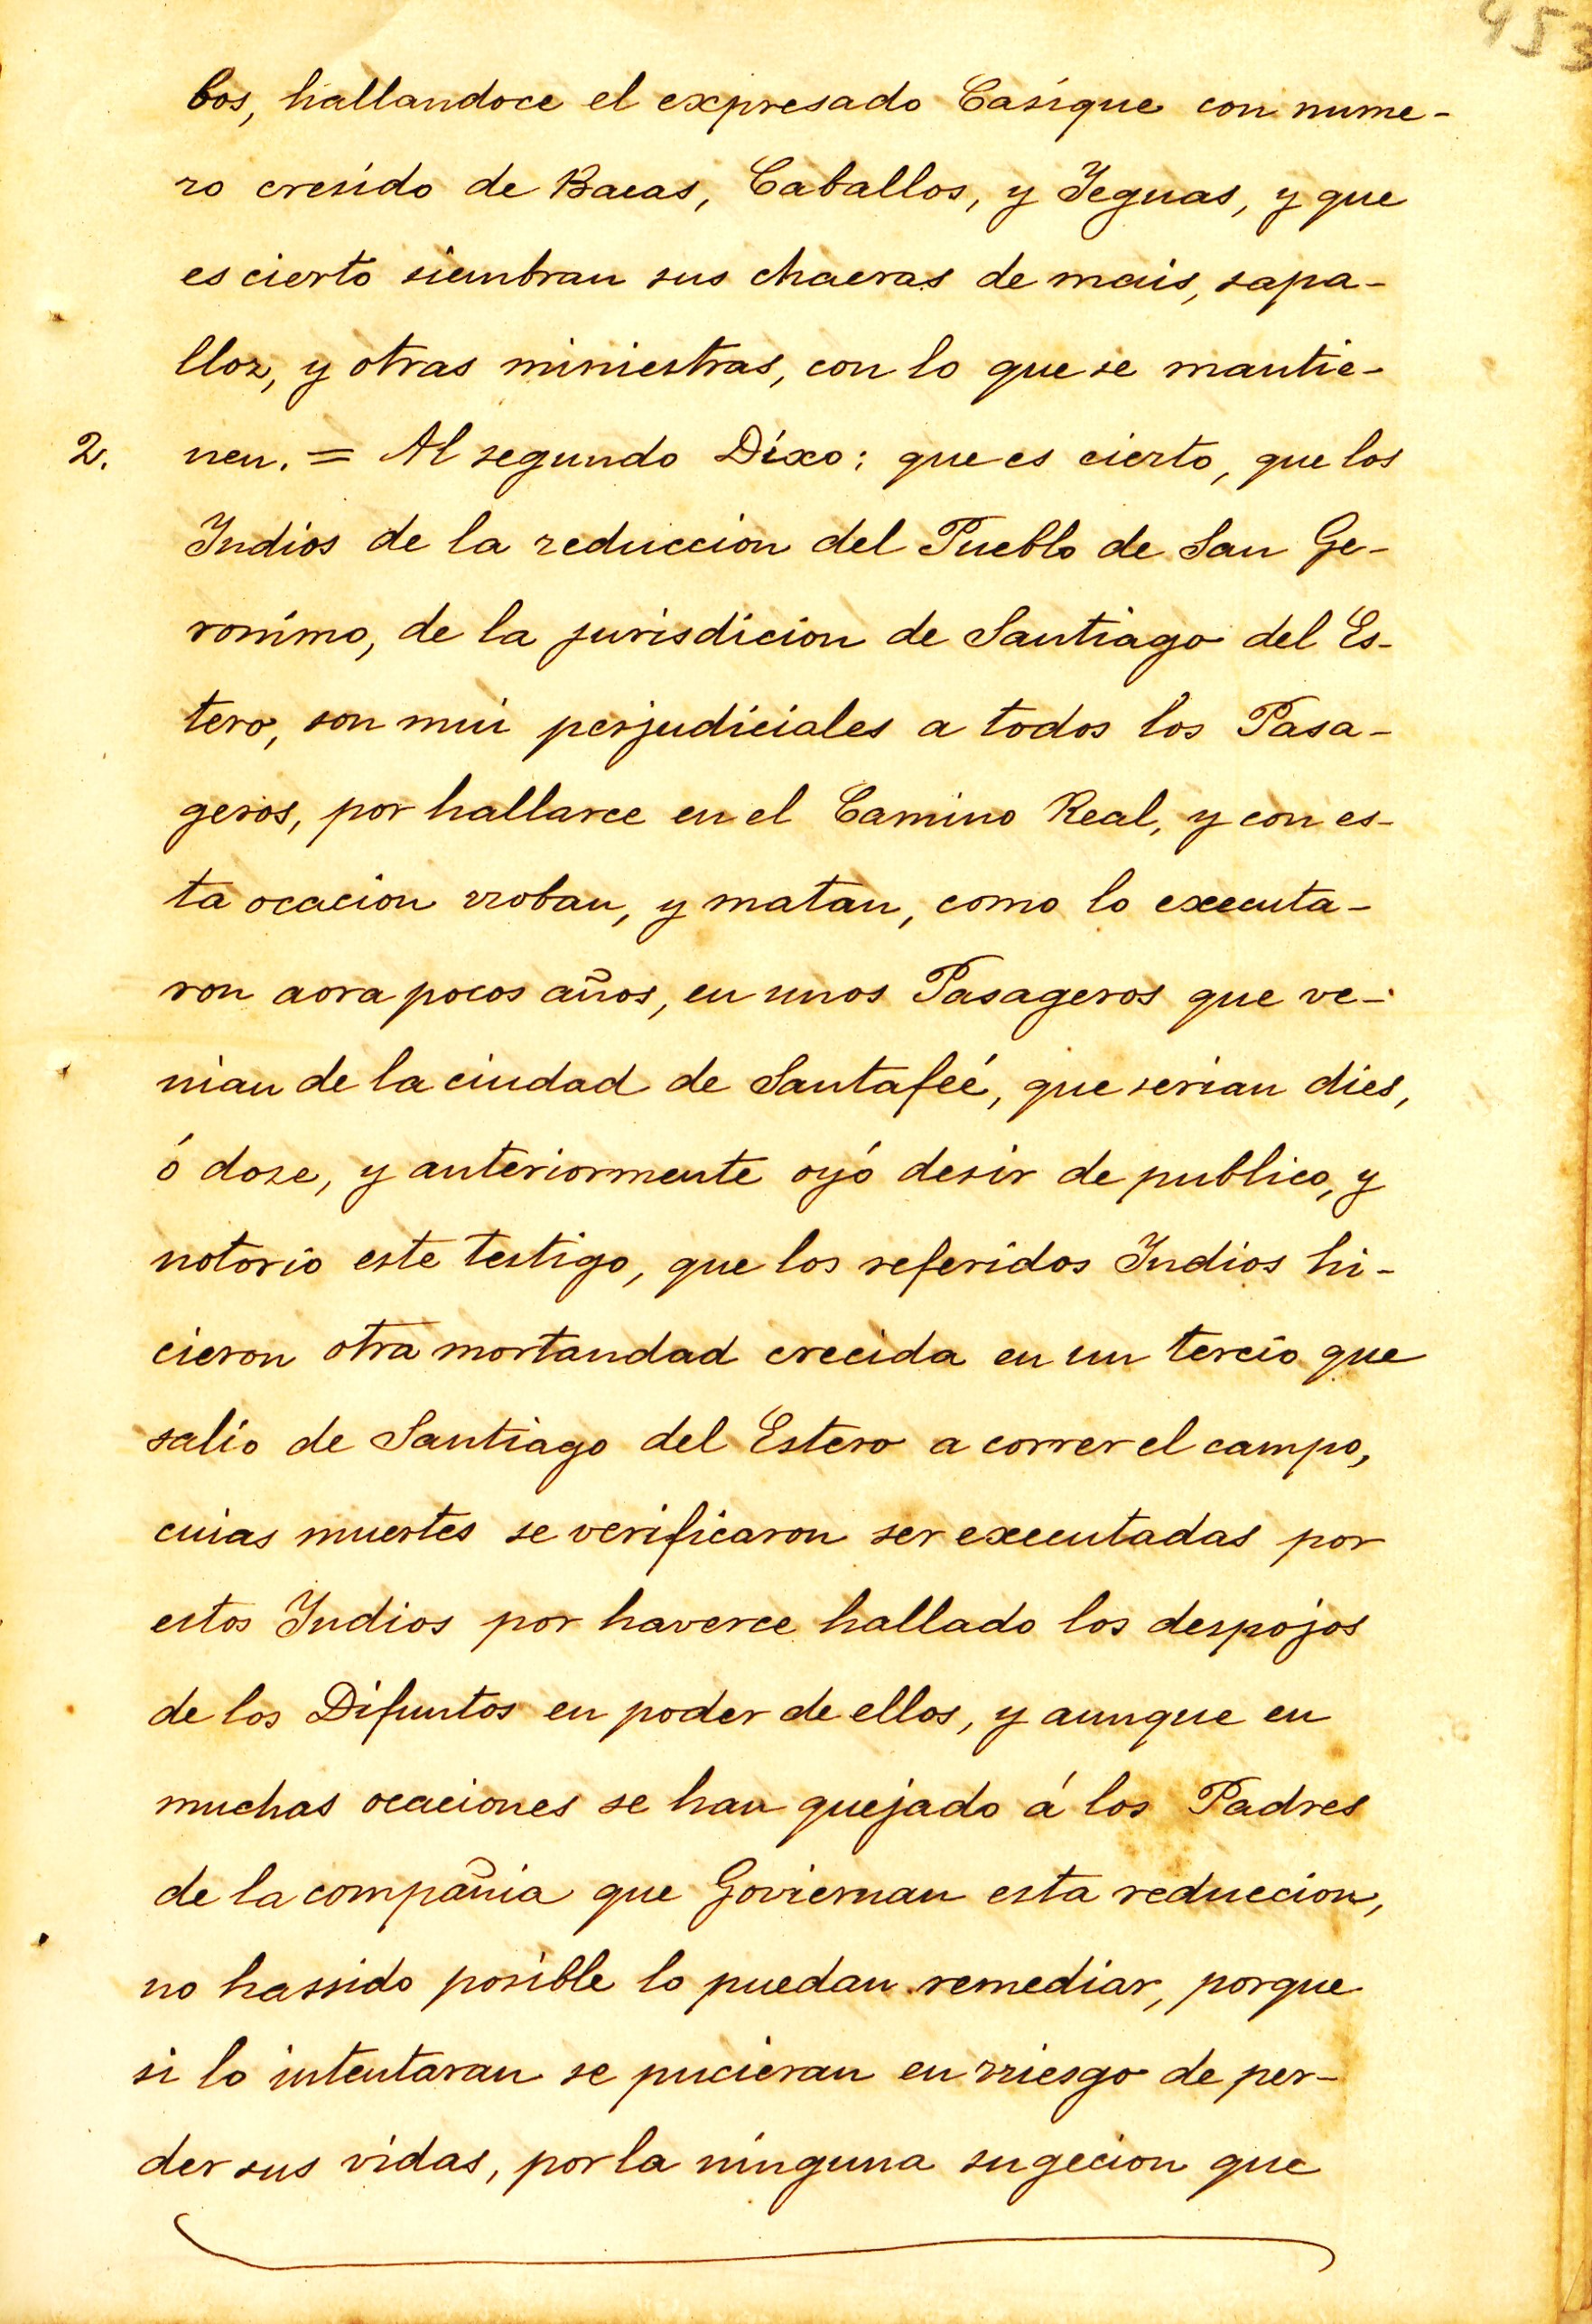 953
bos, hallandoce el expresado Casique con nume-
ro cresido de Bacas, Caballos, y Yeguas, y que
es cierto siembran sus chacras de mais, sapa-
lloz, y otras miniestras, con lo que se mantie-
2. nen. = Al segundo Dixo: que es cierto, que los
Indios de la reduccion del Pueblo de San Ge-
ronimo, de la jurisdicion de Santiago del Es-
tero, son mui perjudiciales a todos los Pasa-
geros, por hallarce en el Camino Real, y con es-
ta ocacion rroban, y matan, como lo executa-
ron aora pocos años, en unos Pasageros que ve-
nian de la ciudad de Santafeé, que serian dies,
ó doze, y anteriormente oyó desir de publico, y
notorio este testigo, que los referidos Indios hi-
cieron otra mortandad crecida en un tercio que
salio de Santiago del Estero a correr el campo,
cuias muertes se verificaron ser executadas por
estos Indios por haverce hallado los despojos
de los Difuntos en poder de ellos, y aunque en
muchas ocaciones se han quejado á los Padres
de la compañia que Goviernan esta reduccion,
no hassido posible lo puedan remediar, porque
si lo intentaran se pucieran en rriesgo de per-
der sus vidas, por la ninguna sugecion que